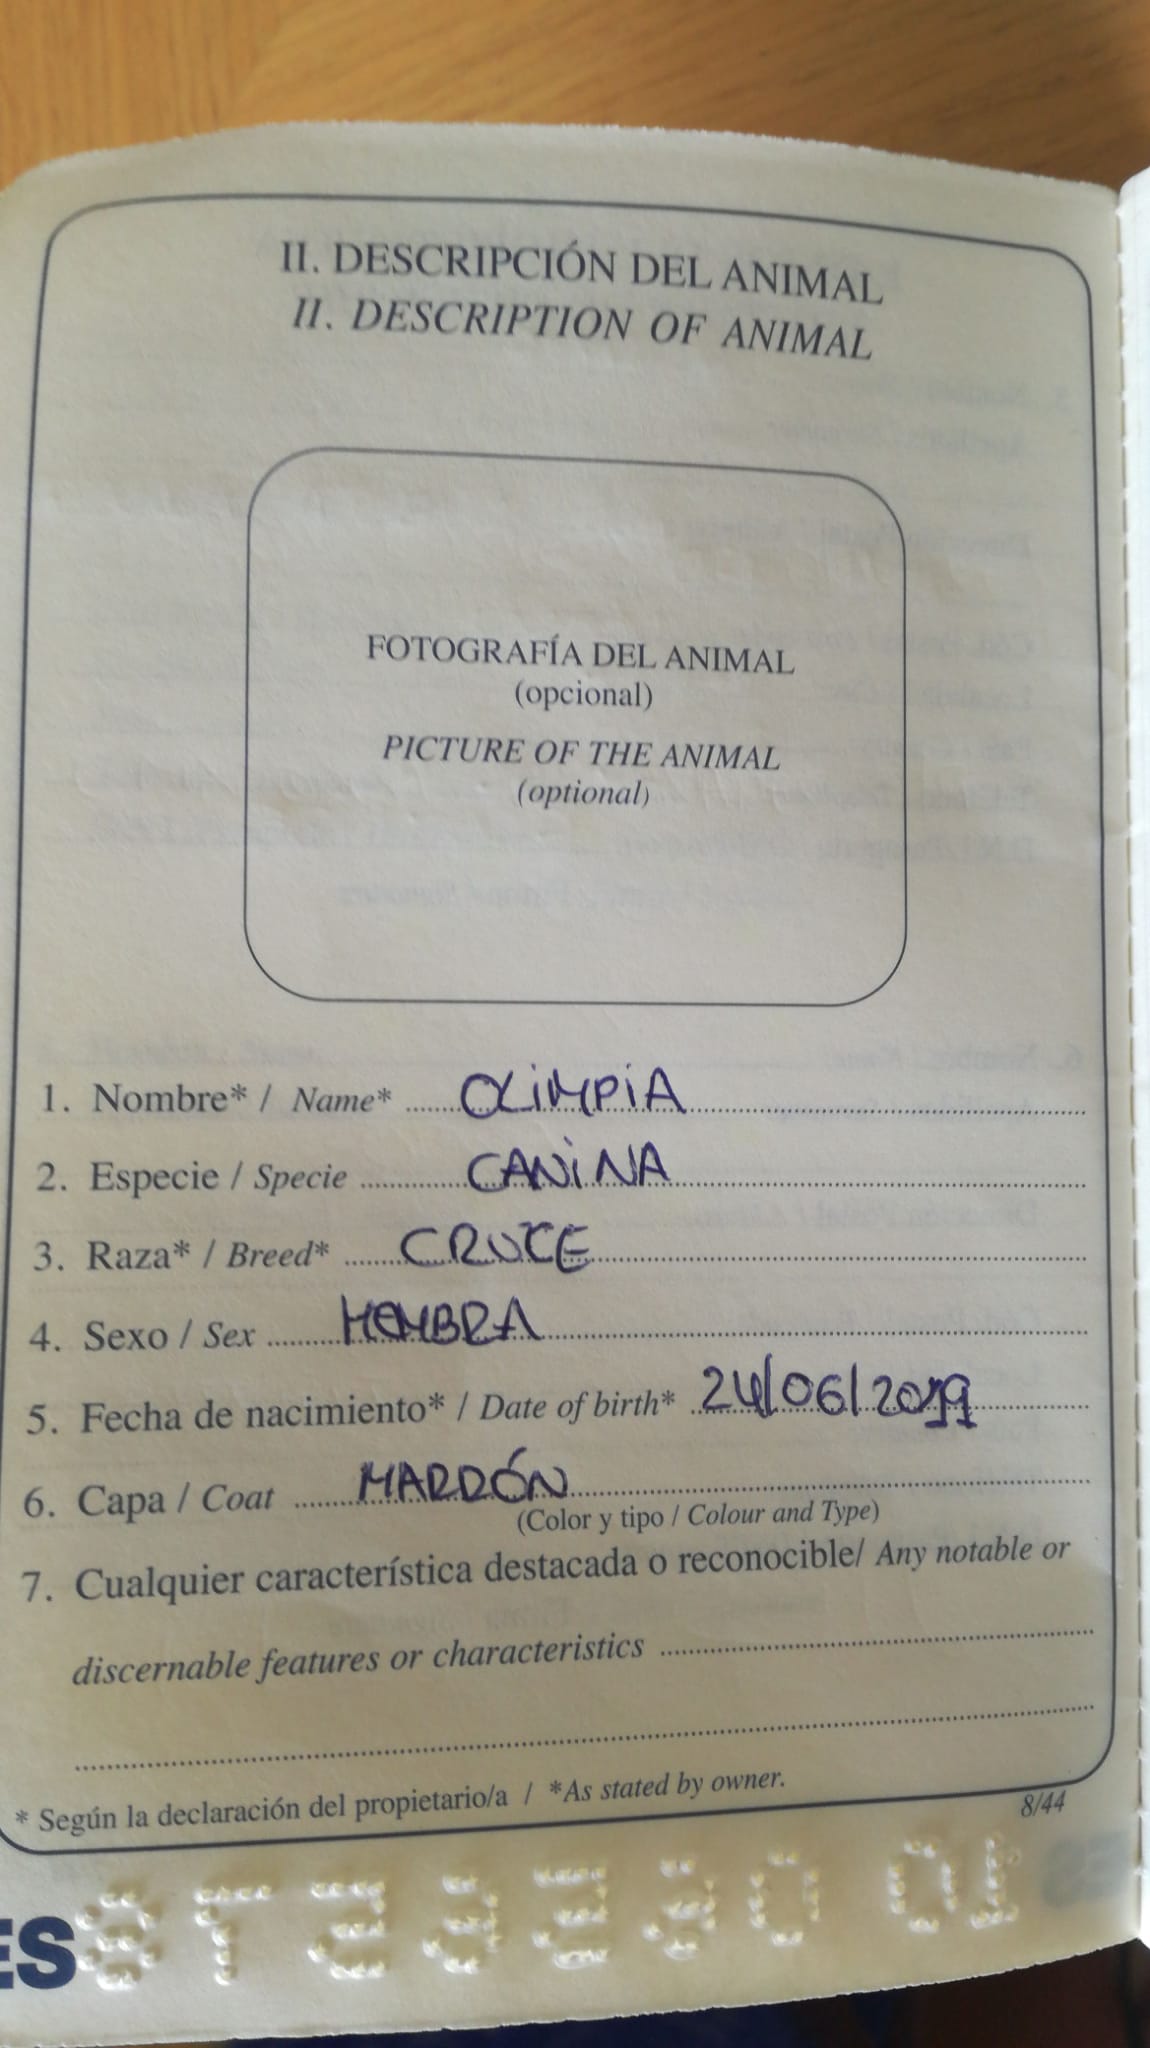 II. DESCRIPCIÓN DEL ANIMAL
II. DESCRIPTION OF ANIMAL
FOTOGRAFÍA DEL ANIMAL
(opcional)
PICTURE OF THE ANIMAL
(optional)
1. Nombre* / Name* OLIMPIA
2. Especie / Specie CANINA
3. Raza* / Breed* CRUCE
4. Sexo / Sex HEMBRA
5. Fecha de nacimiento* / Date of birth* 24/06/2019
6. Capa / Coat MARRÓN
(Color y tipo / Colour and Type)
7. Cualquier característica destacada o reconocible/ Any notable or
discernable features or characteristics
* Según la declaración del propietario/a / *As stated by owner.
8/44
ES